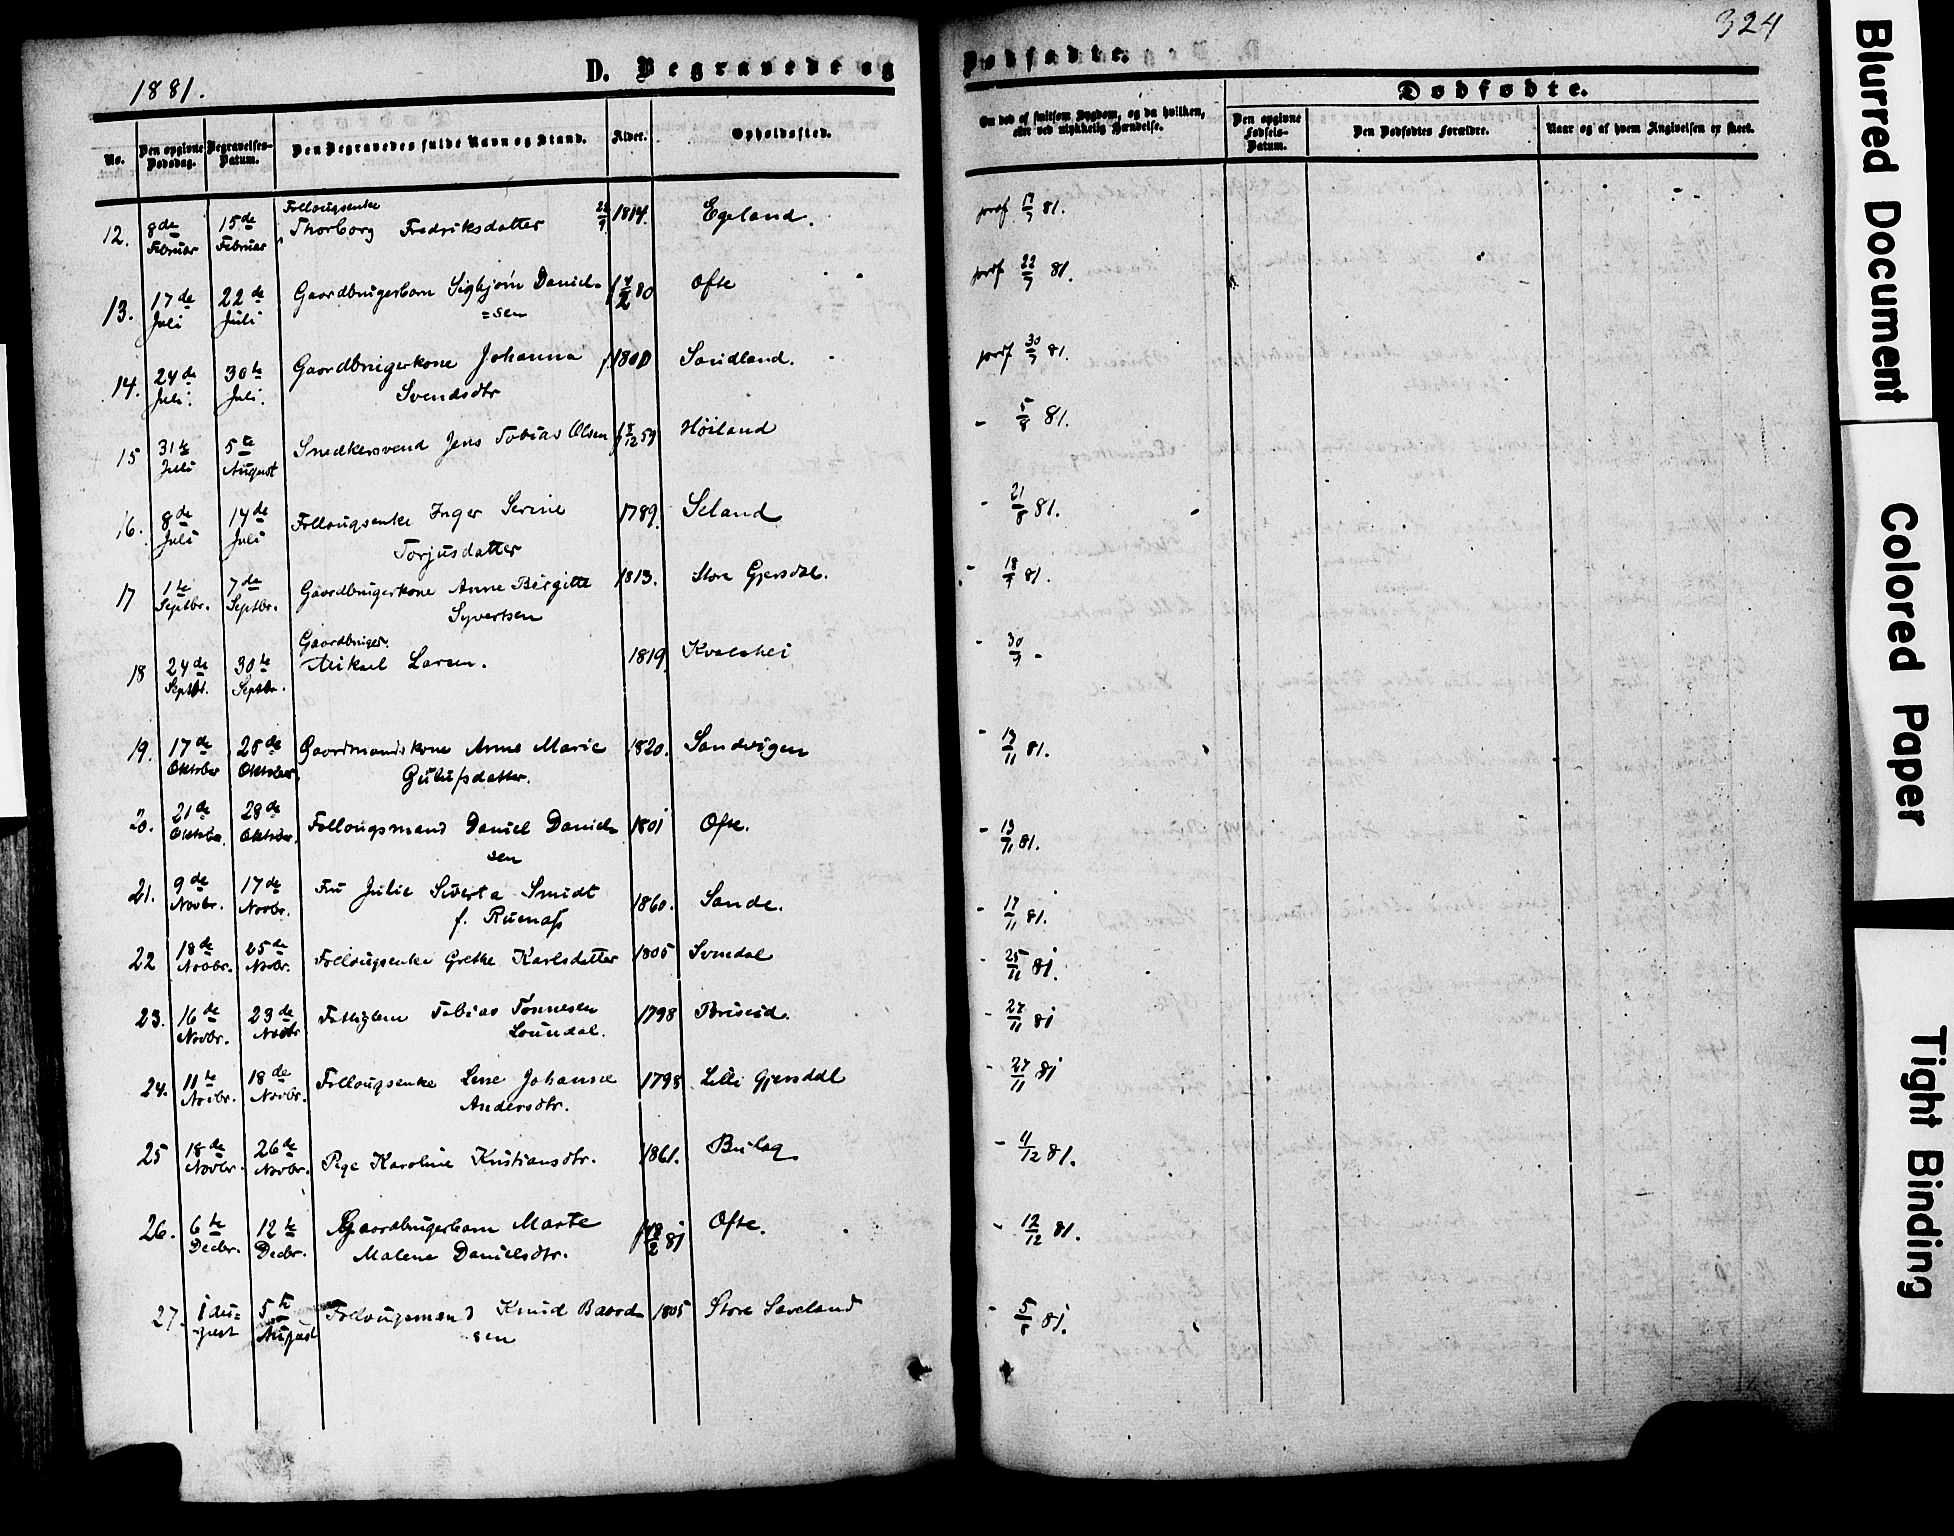 324
1881.
D. Begravede og
Dødfødte.
No.
Den opgivne Dødsdag.
Begravelses-Datum.
Den Begravedes fulde Navn og Stand.
Alder.
Opholdssted.
Om død af smitsom Sygdom, og da hvilken,
eller ved ulykkelig Hændelse.
Dødfødte.
Den opgivne Fødsels-Datum.
Den Dødfødtes Forældre.
Naar og af hvem Angivelsen er skeet.
12. 8de Februar 15de Februar Follougsenke Thorborg Fredriksdatter 1814. Egeland. 81.
13. 17de Juli 22de Juli Gaardbrugerbarn Sigbjørn Daniel-
=sen 80 Ofte 22/7 81.
14. 24de Juli. 30te Juli. Gaardbrugerkone Johanna
Svendsdtr 1800 Sandland. 30/7 81.
15 31te Juli 5te August Snedkersvend Jens Tobias Olsen 59 Høiland - 5/8 81.
16. 8de Juli 14de Juli Follougsenke Inger Serine
Torjusdatter 1789. Seland - 21/8 81.
17 1te Septbr. 7de Septbr. Gaardbrugerkone Anne Birgitte
Syvertsen 1813. Store Gjersdal. - 81.
18 24de Septbr. 30te Septbr. Gaardbruger.
Mikael Larsen. 1819. Kvalshei - 30/9 -
19. 17de Oktober 28de Oktober. Gaardmandskone Anne Marie
Gulufsdatter. 1820. Sandvigen - 13/11 81.
20. 21de Oktober. 28de Oktober. Follougsmand Daniel Daniel-
sen 1801 Ofte. - 13/11 81.
21. 9de Novbr. 17de Novbr. Fru Julie Siverta Smidt
f. 1860. Sande. - 17/11 81.
22 18de Novbr. 25de Novbr. Follougsenke Grethe Karlsdatter 1805 Svindal - 25/11 81.
23. 16de Novbr. 23de Novbr Fattiglem Tobias Tønnesen
1798 Briseid. - 27/11 81
24. 11te Novbr. 18de Novbr. Follougsenke Lene Johanne
Andersdtr. 1798 Lille Gjersdal - 27/11 81
25 18de Novbr. 26de Novbr. Pige Karoline Kristiansdtr. 1861. - 4/12 81.
26. 6te Decbr. 12te Decbr. Gaardbrugerbarn Marte
Malene Danielsdtr. 81 Ofte. - 12/12 81.
27. 1 Au-
gust 5te August Follougsmand Knud Baard-
sen 1805 Store Saveland - 5/8 81.
Blurred Document
Colored Paper
Tight Binding